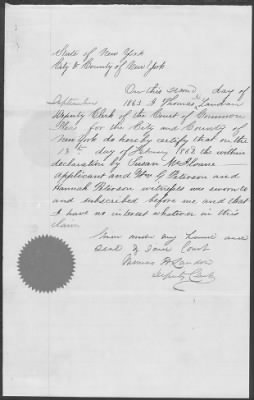 State of New York
City & County of New York
On this second day of
September 1863 I Thomas H Landon
Deputy Clerk of the Court of Common
Pleas for the City and County of
New York do hereby certify that on the
13th day of February 1863 the within
declaration by Susan
applicant and Wm G Peterson and
Hannah Peterson witnesses was sworn to
and subscribed before me and that
I have no interest whatever in this
claim
Given under my hand and
Seal of said Court
Thomas H Landon
Deputy Clerk